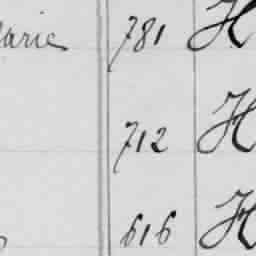 arie 781 H
712 H
616 H